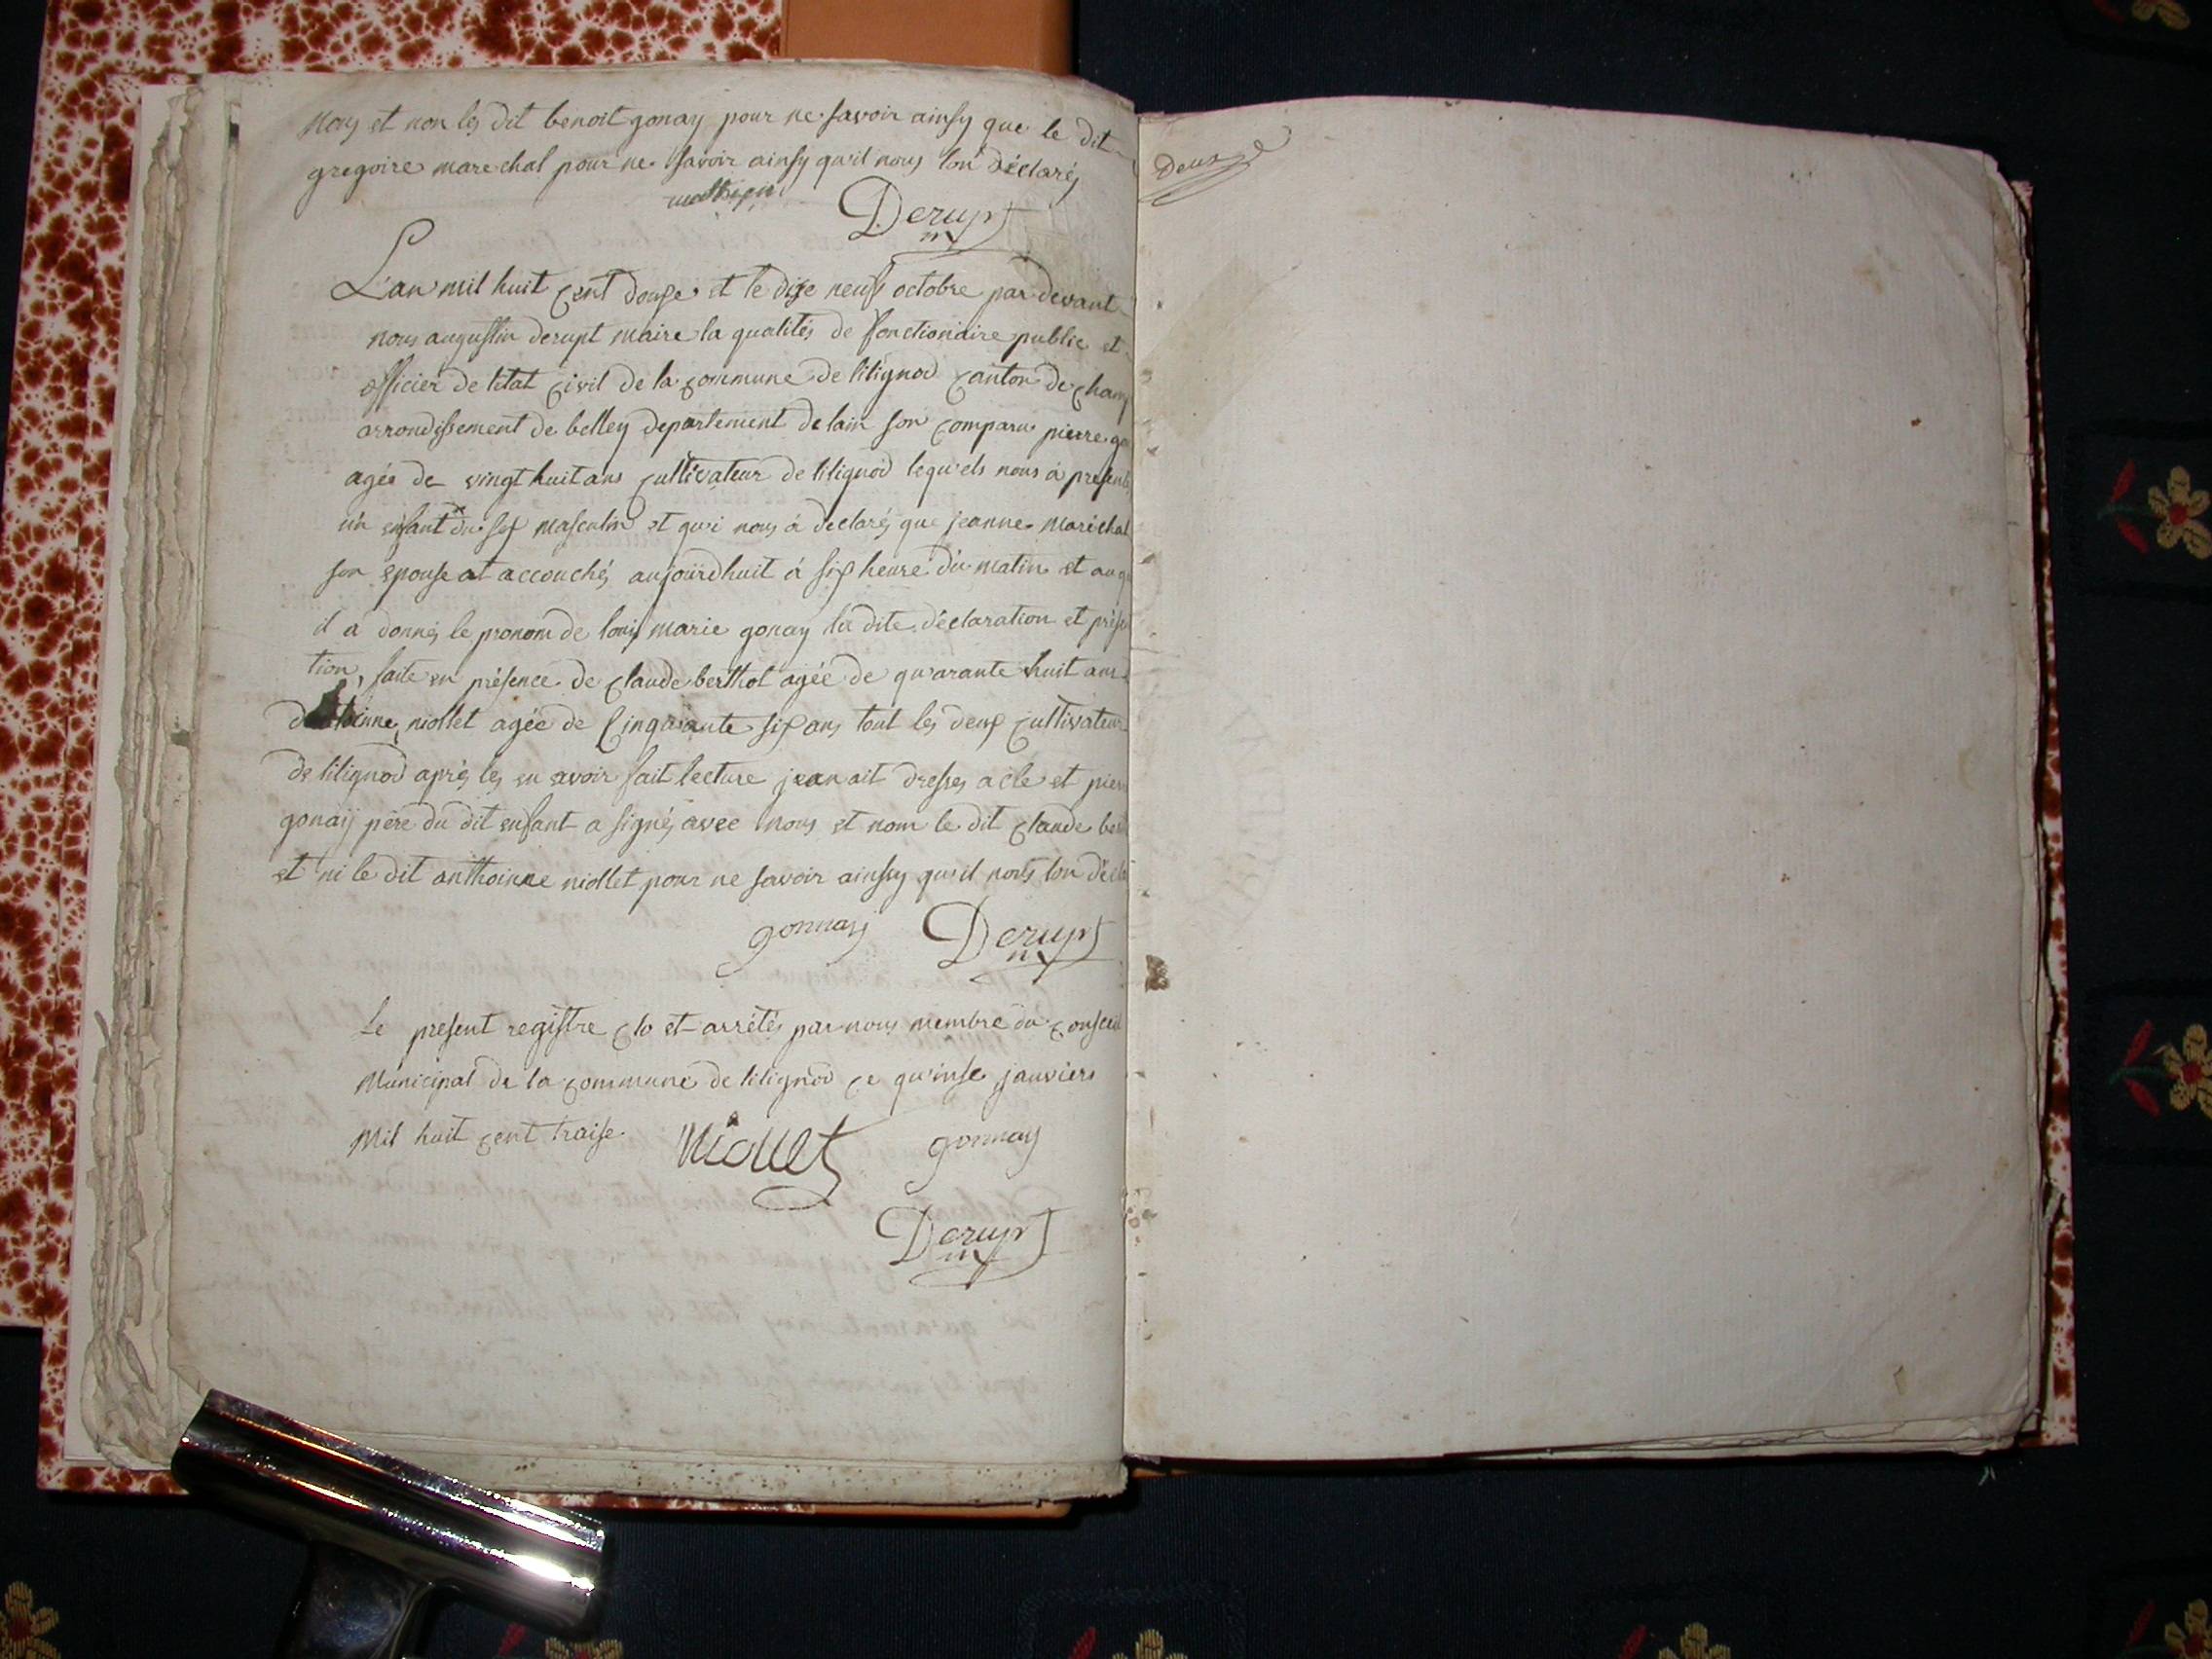 nous et non les dit benoit gonay pour ne savoir ainsy que le dit
gregoire marechal pour ne savoir ainsy qu'il nous l'on déclarés
Derupt
m
L'an mil huit cent douze et le dixe neuf octobre par devant
nous augustin derupt maire la qualités de fonctionaire public et
officier de letat civil de la commune de lilignod canton de champ
arrondissement de belley departement de lain son comparu pierre go
agée de vingt huit ans cultivateur de lilignod lequ'els nous à presenté
ún enfant du sex masculin et qui nous á declarés que jeanne maréchal
son epouse at accouchés aujourdhuit á six heure du matin et auq
il a donnés le pronom de louis marie gonay la dite déclaration et prése
tion, faite en présence de claude berthot agée de qu'arante huit ans
niollet agée de cinquante six ans tout les deux cultivateur
de lilignod aprés les en avoir fait lecture jean ait dresses acte et pier
gonaÿ pére du dit enfant a signés avec nous et nom le dit claude ber
et ni le dit anthoinne niollet pour ne savoir ainsy qu'il nous lon décla
gonnay Derupt
m
Le present registre clo et arrétés par nous membre du conseil
Municipal de la commune de lilignod ce qu'inse janviers
Mil huit cent traise. Niollet gonnay
Derupt
m
Deuxe